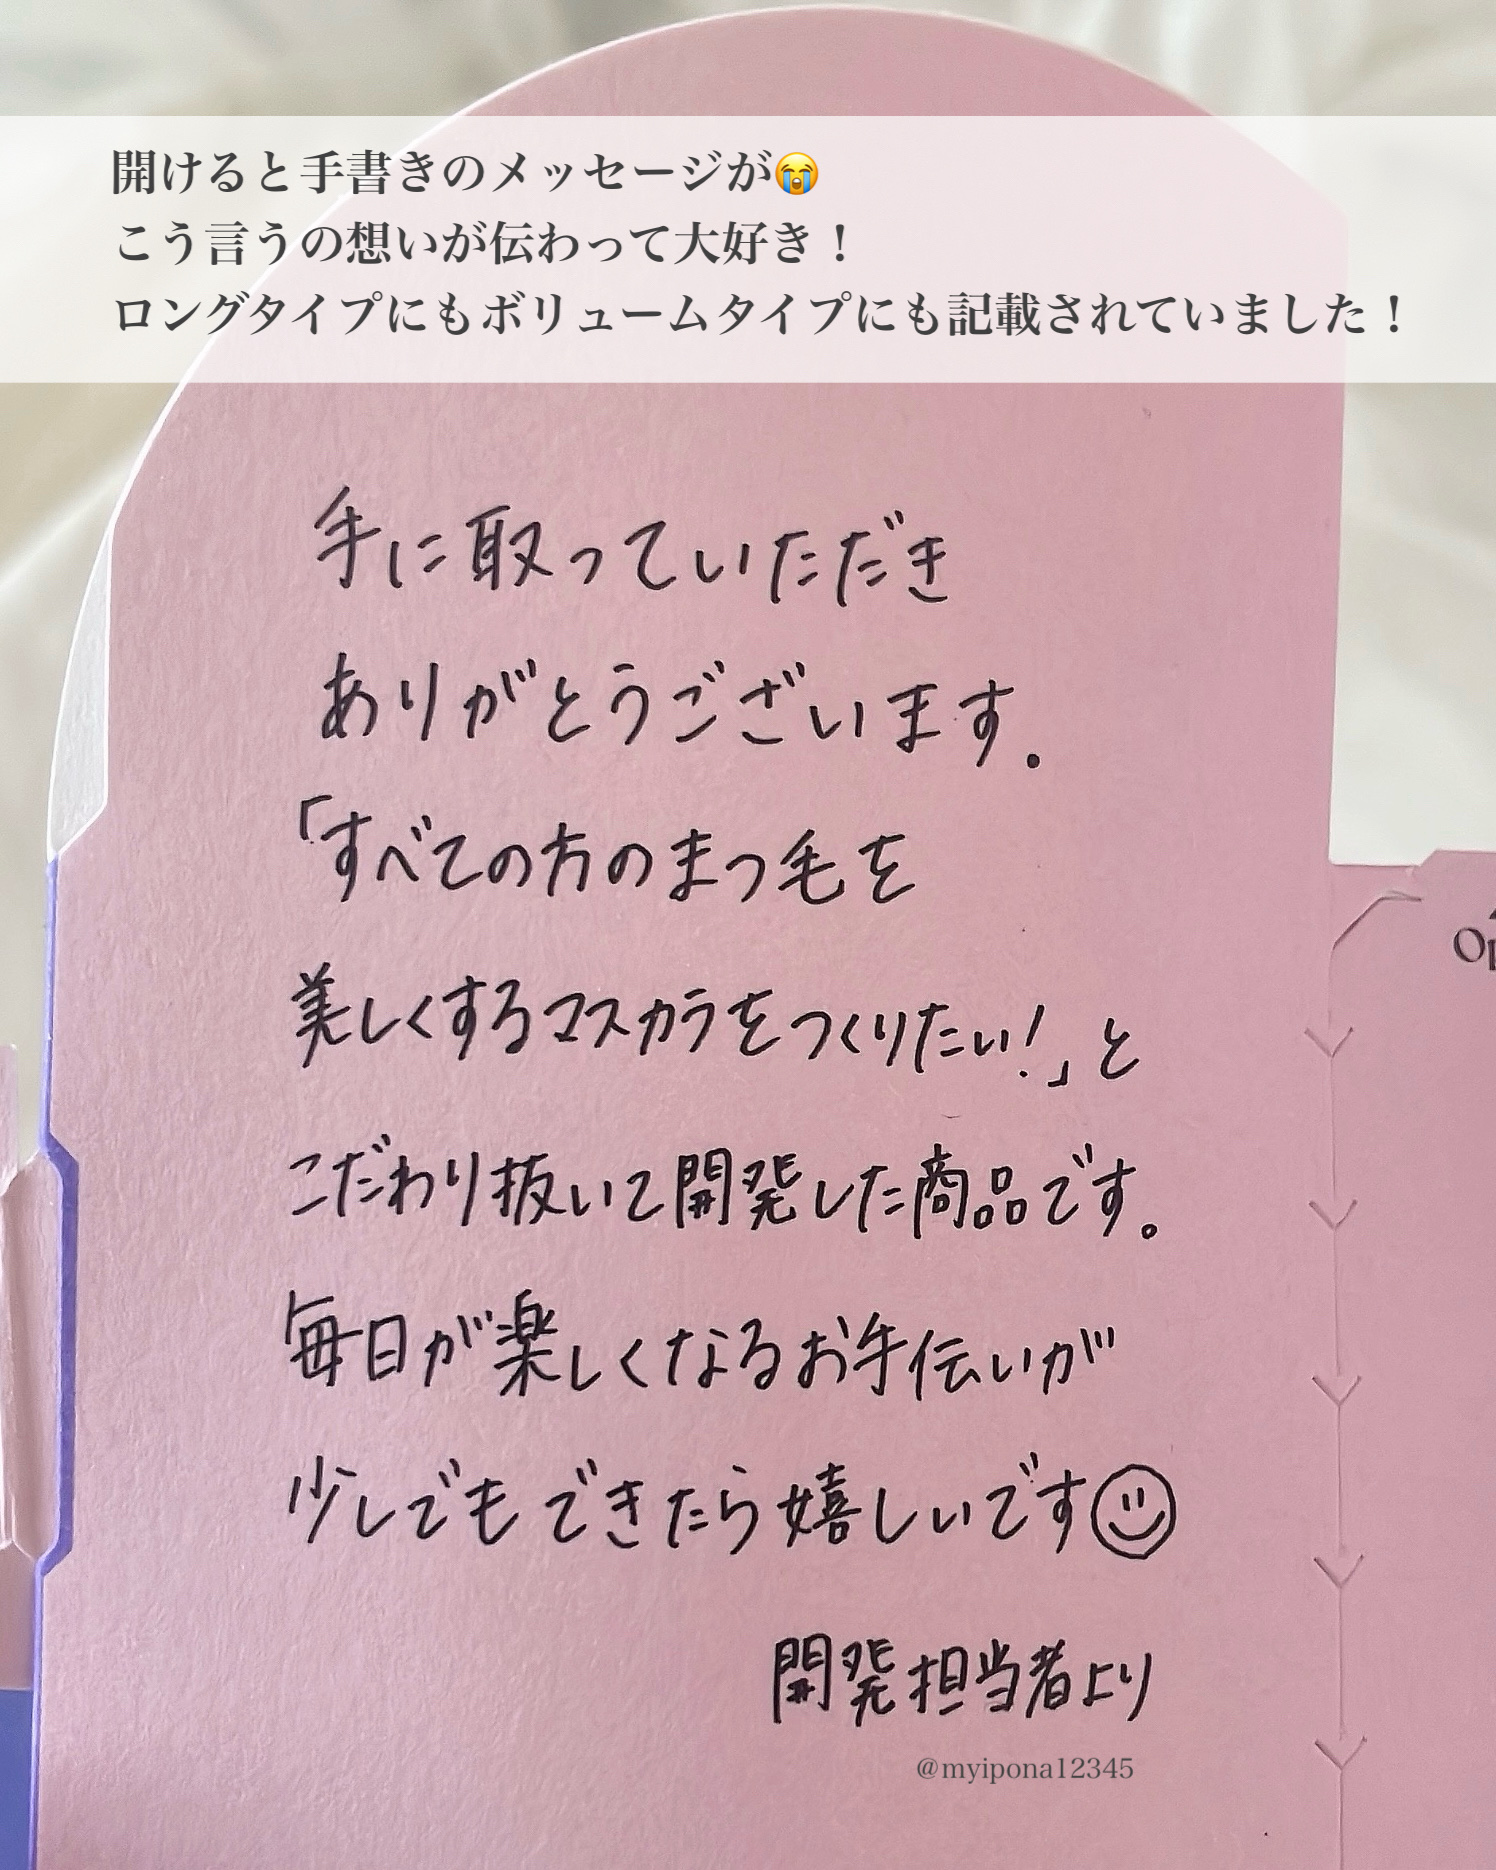 開けると手書きのメッセージが😭
こう言うの想いが伝わって大好き！
ロングタイプにもボリュームタイプにも記載されていました！
手に取っていただき
ありがとうございます。
「すべての方のまつ毛を
美しくするマスカラをつくりたい！」と
こだわり抜いて開発した商品です。
毎日が楽しくなるお手伝いが
少しでもできたら嬉しいです☺
開発担当者より
@myipona12345